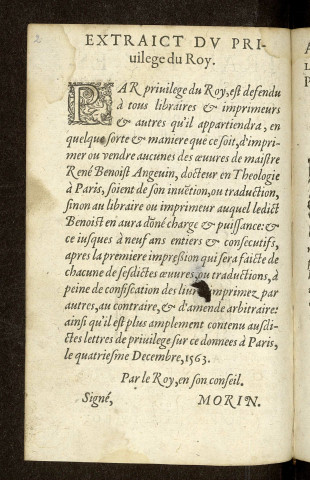 2
EXTRAICT DV PRI-
uilege du Roy.
PAR priuilege du Roy, est defendu
à tous libraires & imprimeurs
& autres qu'il appartiendra, en
quelque sorte & maniere que ce soit, d'impri-
mer ou vendre aucunes des œuures de maistre
René Benoist Angeuin, docteur en Theologie
à Paris, soient de son inuētion, ou traduction,
sinon au libraire ou imprimeur auquel ledict
Benoist en aura dōné charge & puissance: &
ce iusques à neuf ans entiers & consecutifs,
apres la premiere impression qui sera faicte de
chacune de sesdictes œuures, ou traductions, à
peine de confiscation des liures imprimez par
autres, au contraire, & d'amende arbitraire:
ainsi qu'il est plus amplement contenu ausdi-
ctes lettres de priuilege sur ce donnees à Paris,
le quatriesme Decembre, 1563.
Par le Roy, en son conseil.
Signé, MORIN.